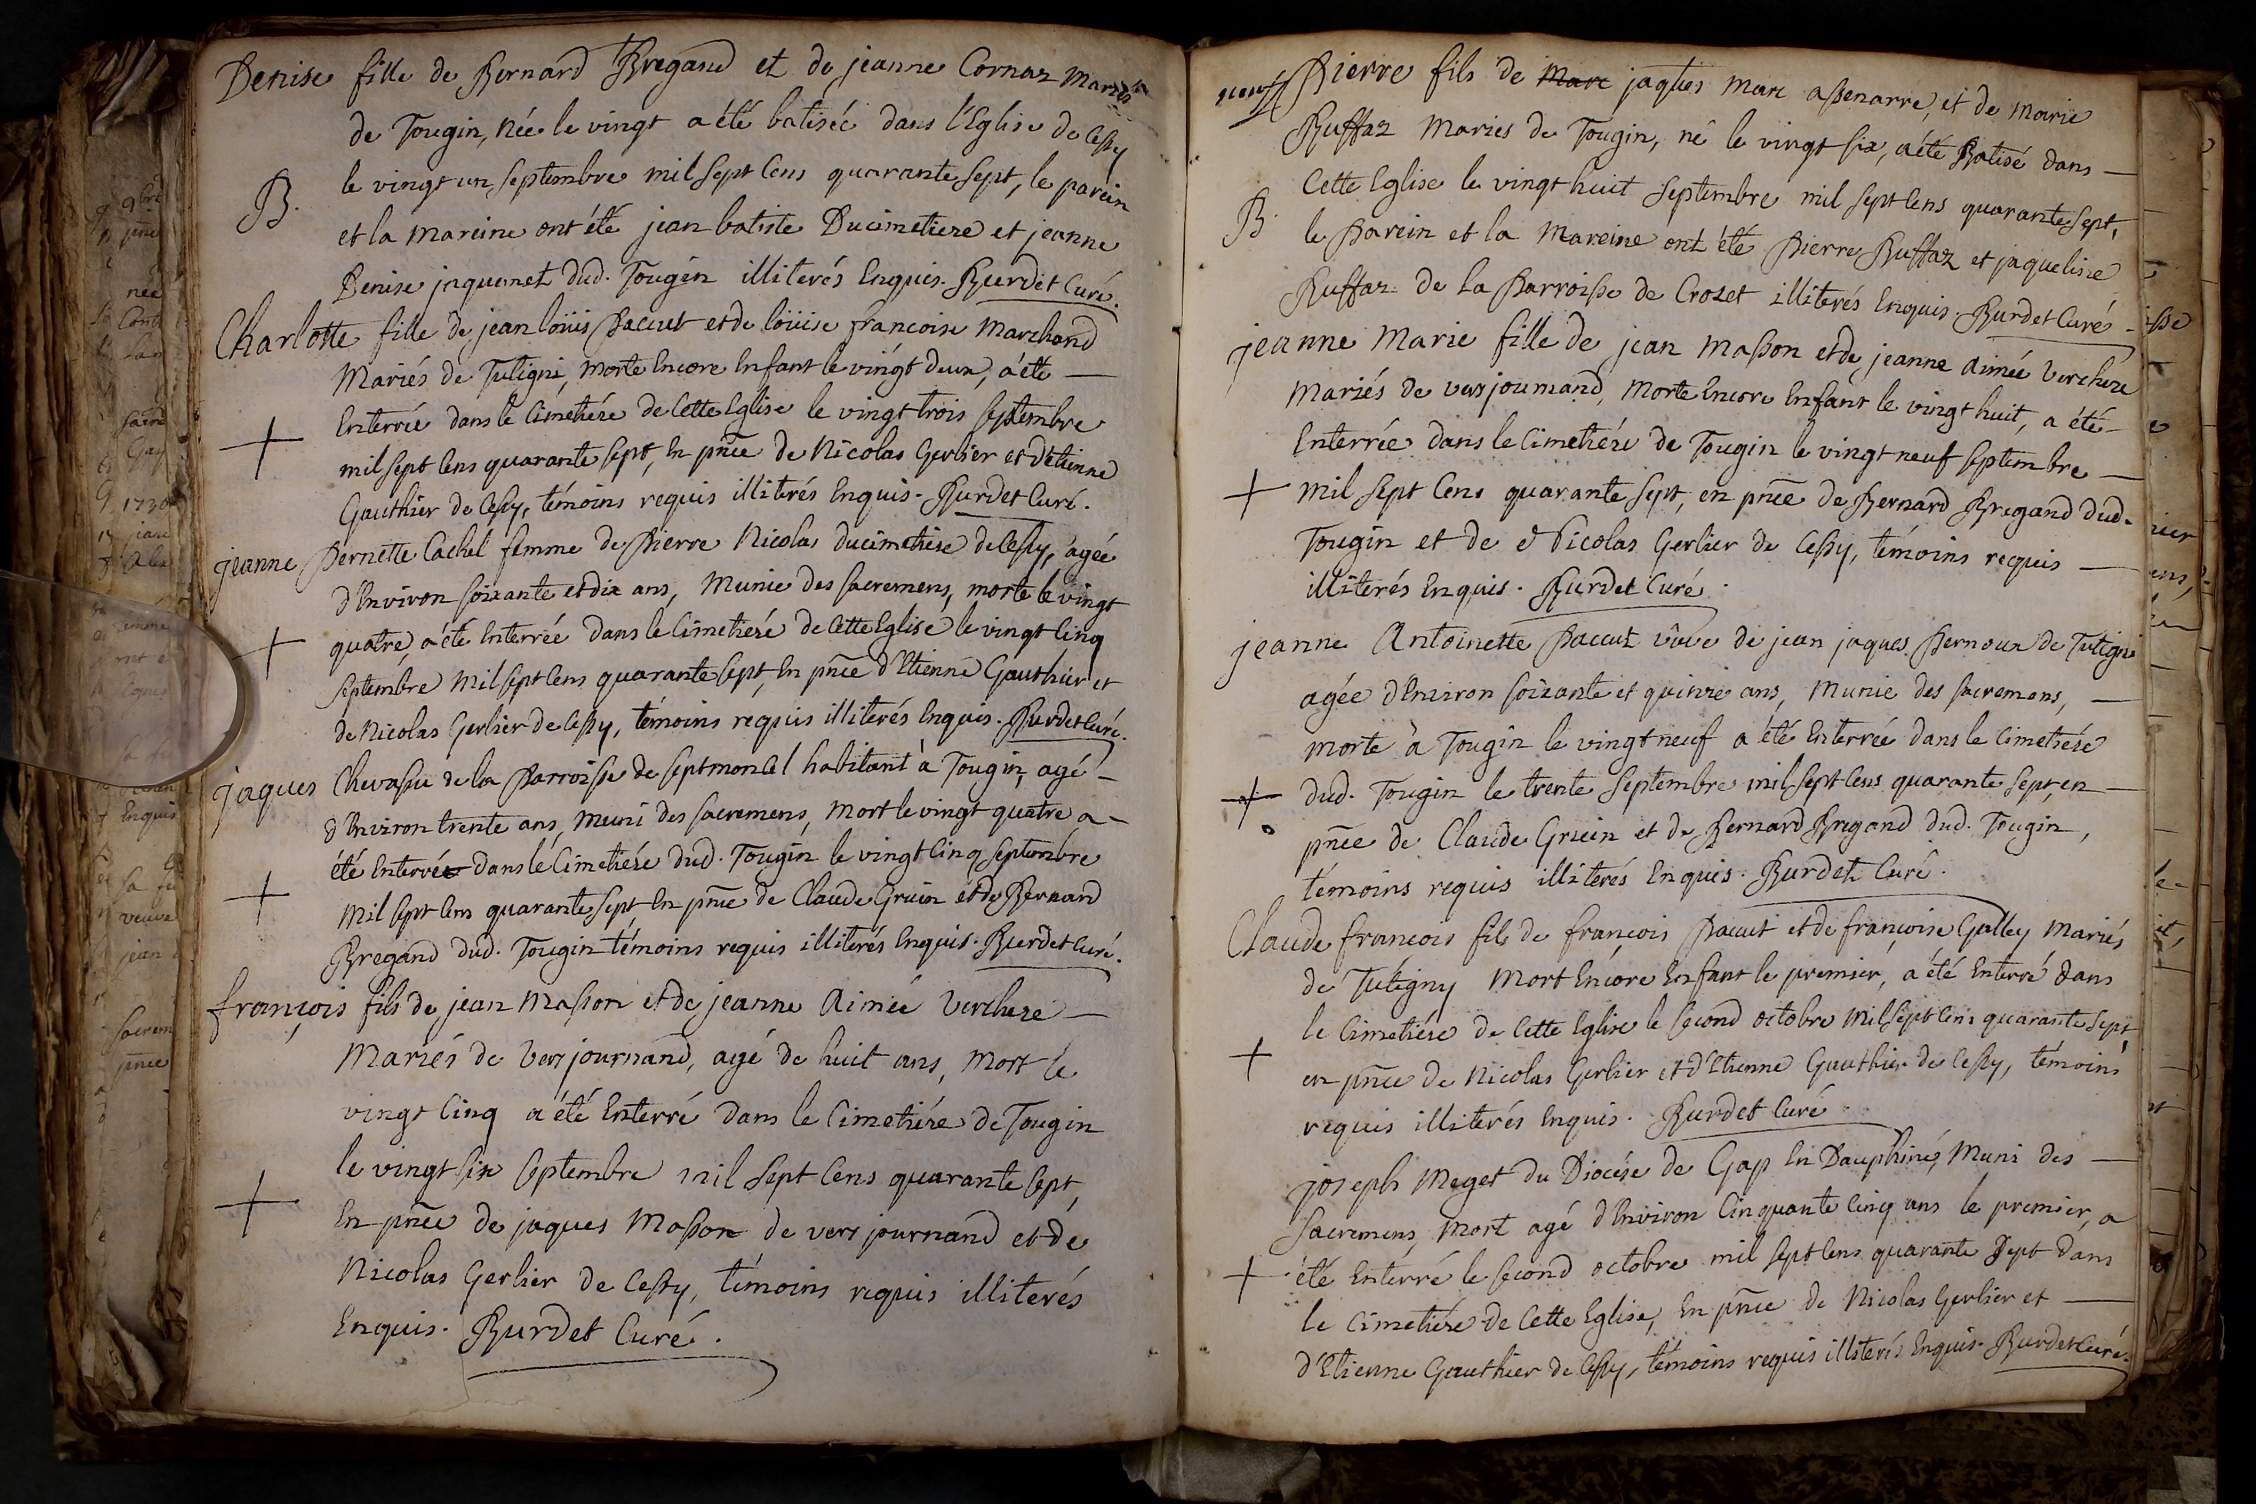 Denise fille de Bernard Bregand et de jeanne Cornaz Mariés
de Tougin, Née le vingt a été batisée dans l'Eglise de Cessy
le vingt un septembre mil sept Cens quarante sept, le parein
B.
et la mareine ont été jean batiste Ducimetiere et jeanne
Denise jaquemet dud. Tougin illiterés Enquis. Burdet Curé.
Charlotte fille de jean loüis Paccut et de loüise francoise Marchand
Mariés de Tutigni, morte Encore Enfant le vingt deux, a été —
Enterrée dans le Cimetiére de Cette Eglise le vingt trois septembre
+
mil sept Cens quarante sept, En pñce de Nicolas Gerlier et d'Etienne
Gauthier de Cessy, témoins requis illiterés Enquis. Burdet Curé.
jeanne Pernette Cachel femme de Pierre Nicolas ducimetiere de Cessy, agée
d'Environ soixante et dix ans, Munie des sacremens, morte le vingt
quatre, a été Enterrée dans le Cimetiére de Cette Eglise le vingt Cinq
+
septembre Mil sept Cens quarante sept, En pñce d'Etienne Gauthier et
de Nicolas Gerlier de Cessy, témoins requis illiterés Enquis. Burdet Curé.
jaques Chevassu de la Parroisse de septmoncel habitant à Tougin, agé —
d'Environ trente ans, Muni des sacremens, Mort le vingt quatre a —
été Enterré dans le Cimetiére dud. Tougin le vingt Cinq septembre
+
Mil sept Cens quarante sept, En pñce de Claude Gruin et de Bernard
Bregand dud. Tougin témoins requis illiterés Enquis. Burdet Curé.
françois fils de jean Masson et de jeanne Aimée Verchere —
Mariés de Vers journand, agé de huit ans, Mort le
vingt Cinq a été Enterré dans le Cimetiére de Tougin
le vingt six septembre mil sept Cens quarante sept,
+
En pñce de jaques Masson de vers journand et de
Nicolas Gerlier de Cessy, témoins requis illiterés
Enquis. Burdet Curé.
Pierre fils de Marc jaques Marc assenarre, et de Marie
Ruffaz Mariés de Tougin, né le vingt six, a été Batisé dans —
Cette Eglise le vingt huit septembre mil sept Cens quarante sept,
B.
le Parein et la Mareine ont été Pierre Ruffaz et jaqueline
Ruffaz de la Parroisse de Crozet illiterés Enquis. Burdet Curé
jeanne Marie fille de jean Masson et de jeanne Aimée Verchere
Mariés de vers journand, Morte Encore Enfant le vingt huit, a été —
Enterrée dans le Cimetiére de Tougin le vingt neuf septembre —
+
Mil sept Cens quarante sept, en pñce de Bernard Bregand dud.
Tougin et de Nicolas Gerlier de Cessy, témoins requis —
illiterés Enquis. Burdet Curé.
jeanne Antoinette Paccut vûve de jean jaques Pernoux de Tutigni
agée d'Environ soixante et quinze ans, Munie des sacremens, —
morte à Tougin le vingt neuf a été Enterrée dans le Cimetiére
+
dud. Tougin le trente septembre mil sept Cens quarante sept, en —
pñce de Claude Gruin et de Bernard Bregand dud. Tougin,
témoins requis illiterés Enquis. Burdet Curé.
Claude francois fils de francois Paccut et de françoise Galley Mariés
de Tutigny Mort Encore Enfant le premier, a été Enterré dans
le Cimetiére de Cette Eglise le second octobre Mil sept Cens quarante sept,
+
en pñce de Nicolas Gerlier et d'Etienne Gauthier de Cessy, témoins
requis illiterés Enquis. Burdet Curé.
joseph Meget du Diocése de Gap En Dauphiné, Muni des —
sacremens, Mort agé d'Environ Cinquante Cinq ans le premier, a
+
été Enterré le second octobre mil sept Cens quarante sept dans
le Cimetiére de Cette Eglise, En pñce de Nicolas Gerlier et —
d'Etienne Gauthier de Cessy, témoins requis illiterés Enquis. Burdet Curé.